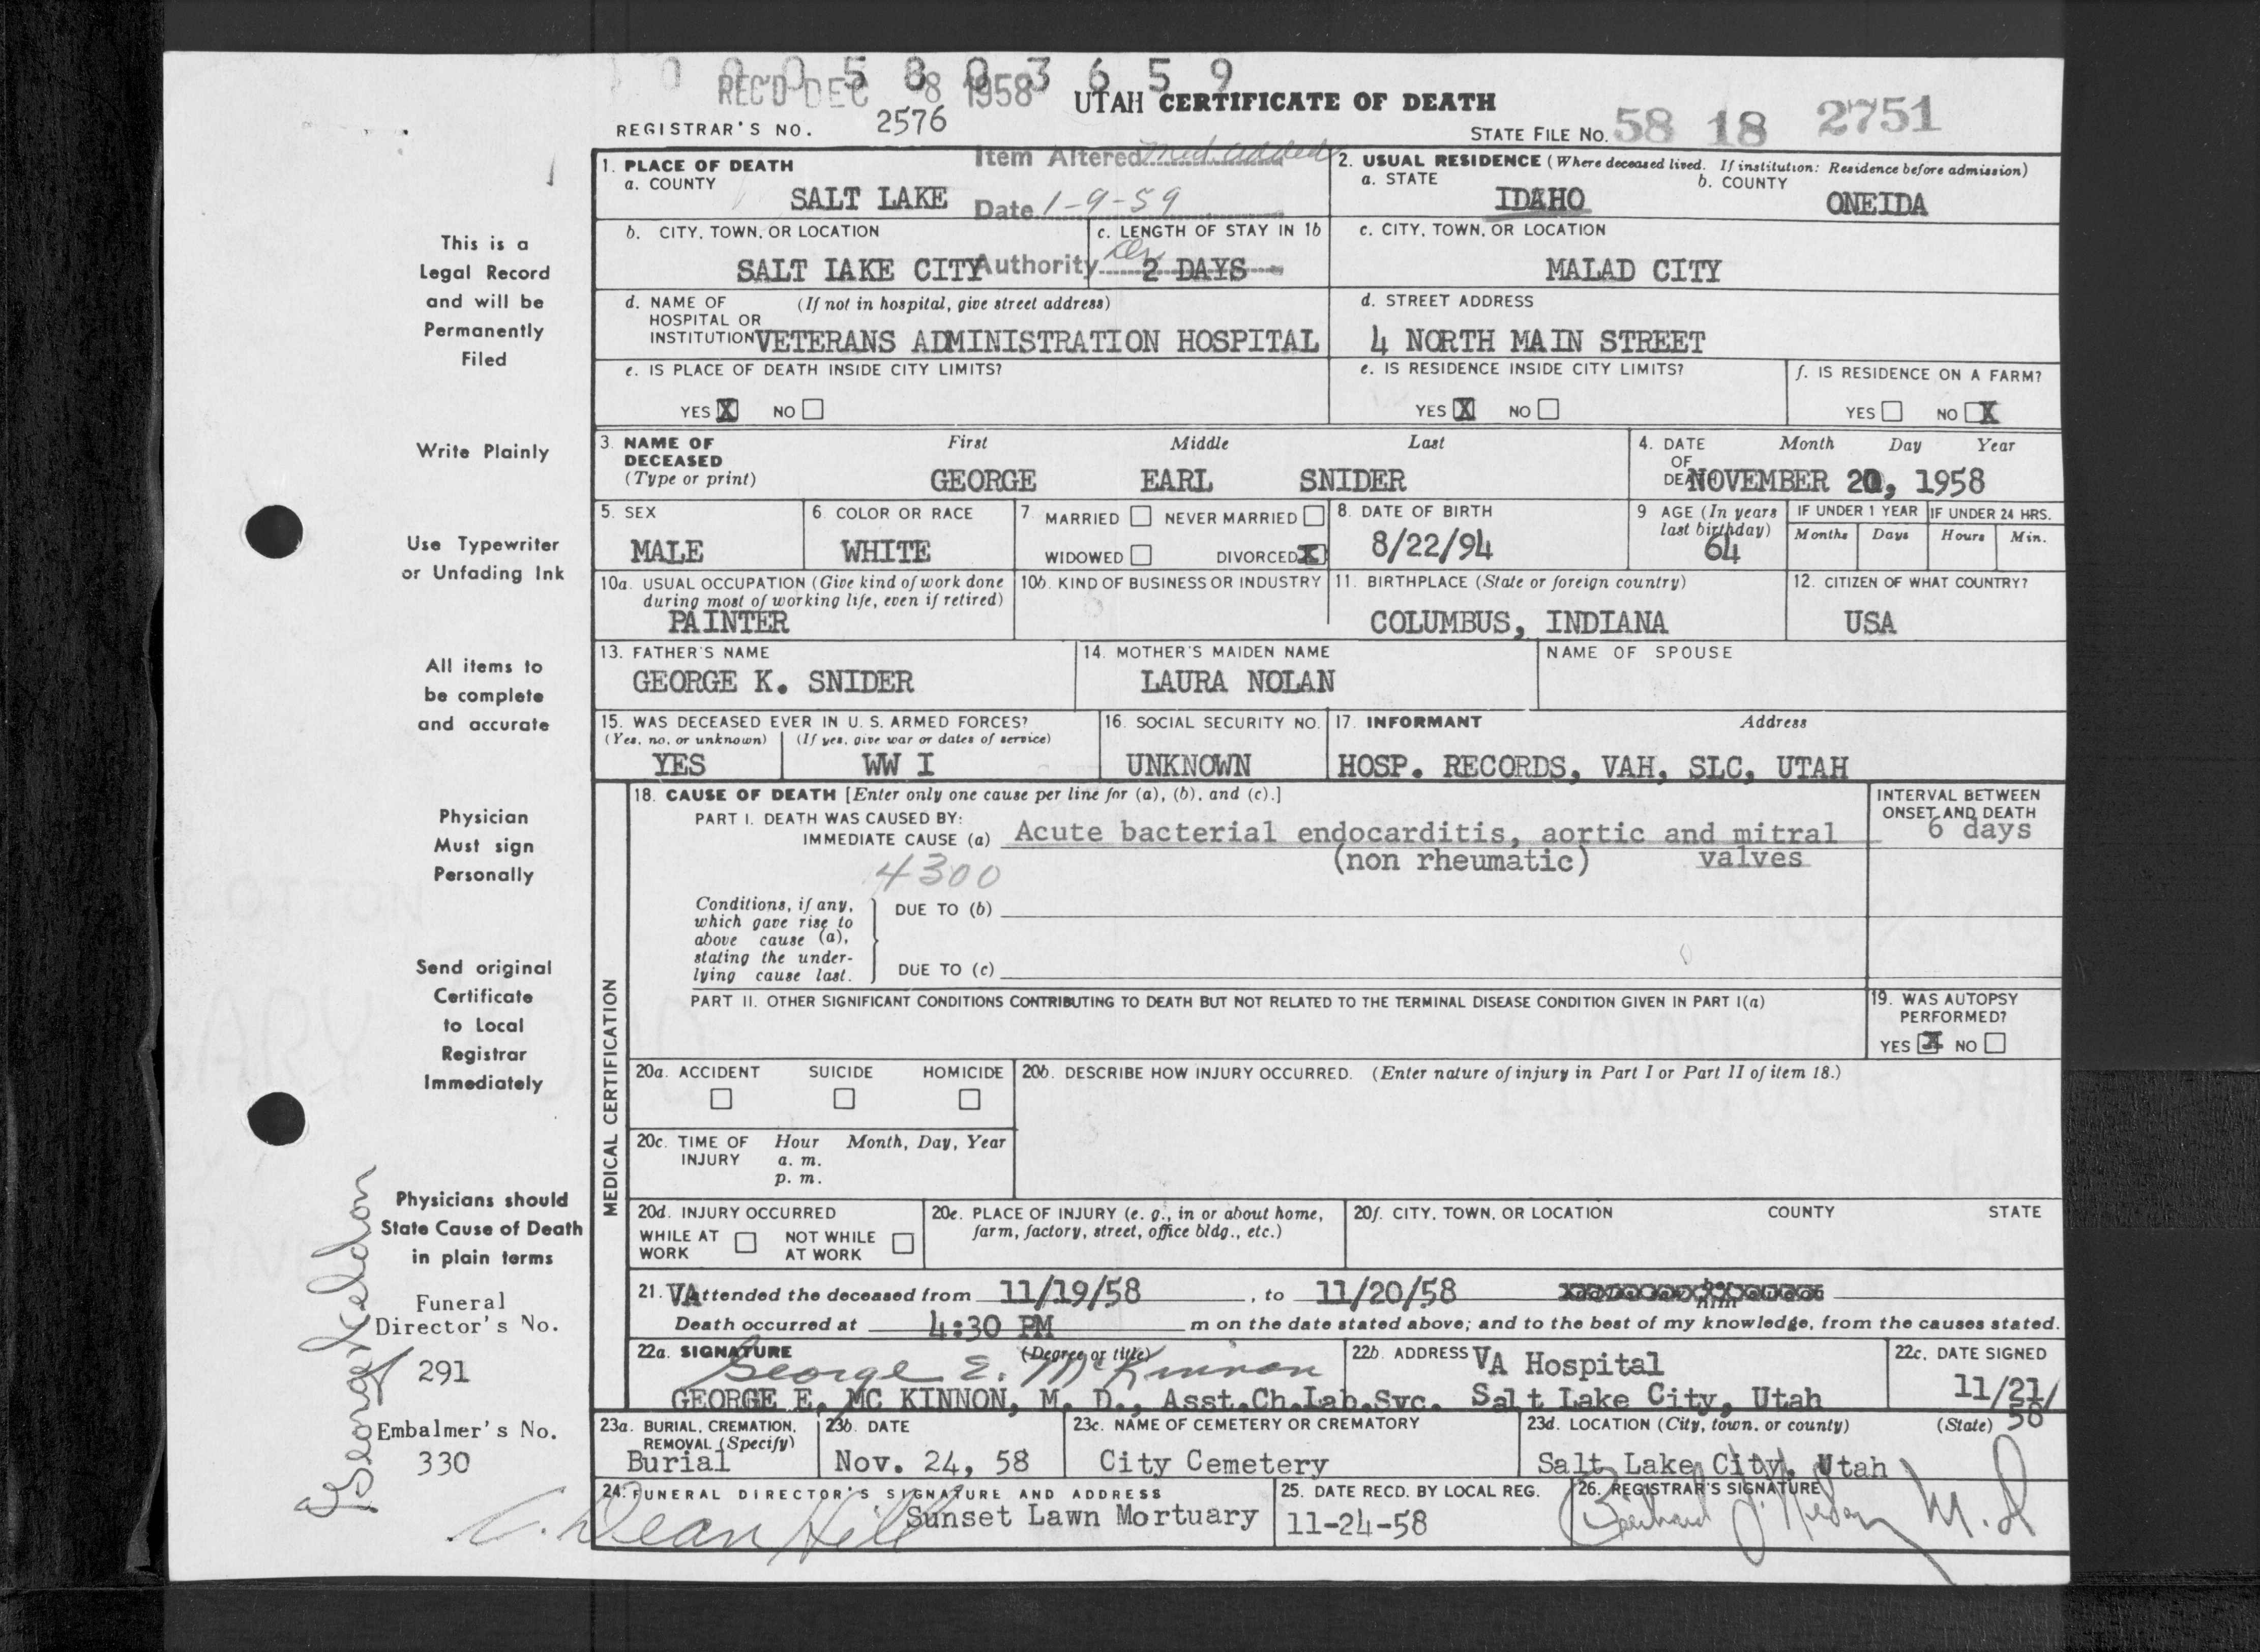 0 0 0 5 8 0 3 6 5 9
REC'D DEC 8 1958
UTAH CERTIFICATE OF DEATH
REGISTRAR'S NO. 2576
STATE FILE No. 58 18 2751
Item Altered Med. added
Date 1-9-59
Authority
1. PLACE OF DEATH
a. COUNTY
SALT LAKE
2. USUAL RESIDENCE (Where deceased lived. If institution: Residence before admission)
a. STATE
IDAHO
b. COUNTY
ONEIDA
b. CITY, TOWN, OR LOCATION
SALT LAKE CITY
c. LENGTH OF STAY IN 1b
2 DAYS
c. CITY, TOWN, OR LOCATION
MALAD CITY
d. NAME OF (If not in hospital, give street address)
HOSPITAL OR
INSTITUTION VETERANS ADMINISTRATION HOSPITAL
d. STREET ADDRESS
4 NORTH MAIN STREET
e. IS PLACE OF DEATH INSIDE CITY LIMITS?
YES X NO
e. IS RESIDENCE INSIDE CITY LIMITS?
YES X NO
f. IS RESIDENCE ON A FARM?
YES NO X
3. NAME OF DECEASED
(Type or print)
First Middle Last
GEORGE EARL SNIDER
4. DATE OF DEATH
Month Day Year
NOVEMBER 20, 1958
5. SEX
MALE
6. COLOR OR RACE
WHITE
7. MARRIED NEVER MARRIED
WIDOWED DIVORCED X
8. DATE OF BIRTH
8/22/94
9 AGE (In years
last birthday)
64
IF UNDER 1 YEAR
Months Days
IF UNDER 24 HRS.
Hours Min.
10a. USUAL OCCUPATION (Give kind of work done
during most of working life, even if retired)
PAINTER
10b. KIND OF BUSINESS OR INDUSTRY
11. BIRTHPLACE (State or foreign country)
COLUMBUS, INDIANA
12. CITIZEN OF WHAT COUNTRY?
USA
13. FATHER'S NAME
GEORGE K. SNIDER
14. MOTHER'S MAIDEN NAME
LAURA NOLAN
NAME OF SPOUSE
15. WAS DECEASED EVER IN U. S. ARMED FORCES?
(Yes, no, or unknown) (If yes, give war or dates of service)
YES WW I
16. SOCIAL SECURITY NO.
UNKNOWN
17. INFORMANT Address
HOSP. RECORDS, VAH, SLC, UTAH
MEDICAL CERTIFICATION
18. CAUSE OF DEATH [Enter only one cause per line for (a), (b), and (c).]
PART I. DEATH WAS CAUSED BY:
IMMEDIATE CAUSE (a) Acute bacterial endocarditis, aortic and mitral
(non rheumatic) valves
4300
INTERVAL BETWEEN
ONSET AND DEATH
6 days
Conditions, if any,
which gave rise to
above cause (a),
stating the under-
lying cause last.
DUE TO (b)
DUE TO (c)
PART II. OTHER SIGNIFICANT CONDITIONS CONTRIBUTING TO DEATH BUT NOT RELATED TO THE TERMINAL DISEASE CONDITION GIVEN IN PART I(a)
19. WAS AUTOPSY
PERFORMED?
YES X NO
20a. ACCIDENT SUICIDE HOMICIDE
20b. DESCRIBE HOW INJURY OCCURRED. (Enter nature of injury in Part I or Part II of item 18.)
20c. TIME OF INJURY
Hour Month, Day, Year
a. m.
p. m.
20d. INJURY OCCURRED
WHILE AT WORK
NOT WHILE AT WORK
20e. PLACE OF INJURY (e. g., in or about home,
farm, factory, street, office bldg., etc.)
20f. CITY, TOWN, OR LOCATION COUNTY STATE
21. VA attended the deceased from 11/19/58, to 11/20/58
Death occurred at 4:30 PM m on the date stated above; and to the best of my knowledge, from the causes stated.
22a. SIGNATURE (Degree or title)
George E. McKinnon
GEORGE E. MC KINNON, M. D., Asst.Ch.Lab.Svc.
22b. ADDRESS VA Hospital
Salt Lake City, Utah
22c. DATE SIGNED
11/21/
58
23a. BURIAL, CREMATION,
REMOVAL (Specify)
Burial
23b. DATE
Nov. 24, 58
23c. NAME OF CEMETERY OR CREMATORY
City Cemetery
23d. LOCATION (City, town, or county) (State)
Salt Lake City, Utah
24. FUNERAL DIRECTOR'S SIGNATURE AND ADDRESS
C. Dean Hill
Sunset Lawn Mortuary
25. DATE RECD. BY LOCAL REG.
11-24-58
26. REGISTRAR'S SIGNATURE
M.D
This is a
Legal Record
and will be
Permanently
Filed
Write Plainly
Use Typewriter
or Unfading Ink
All items to
be complete
and accurate
Physician
Must sign
Personally
Send original
Certificate
to Local
Registrar
Immediately
Physicians should
State Cause of Death
in plain terms
Funeral
Director's No.
291
Embalmer's No.
330
George